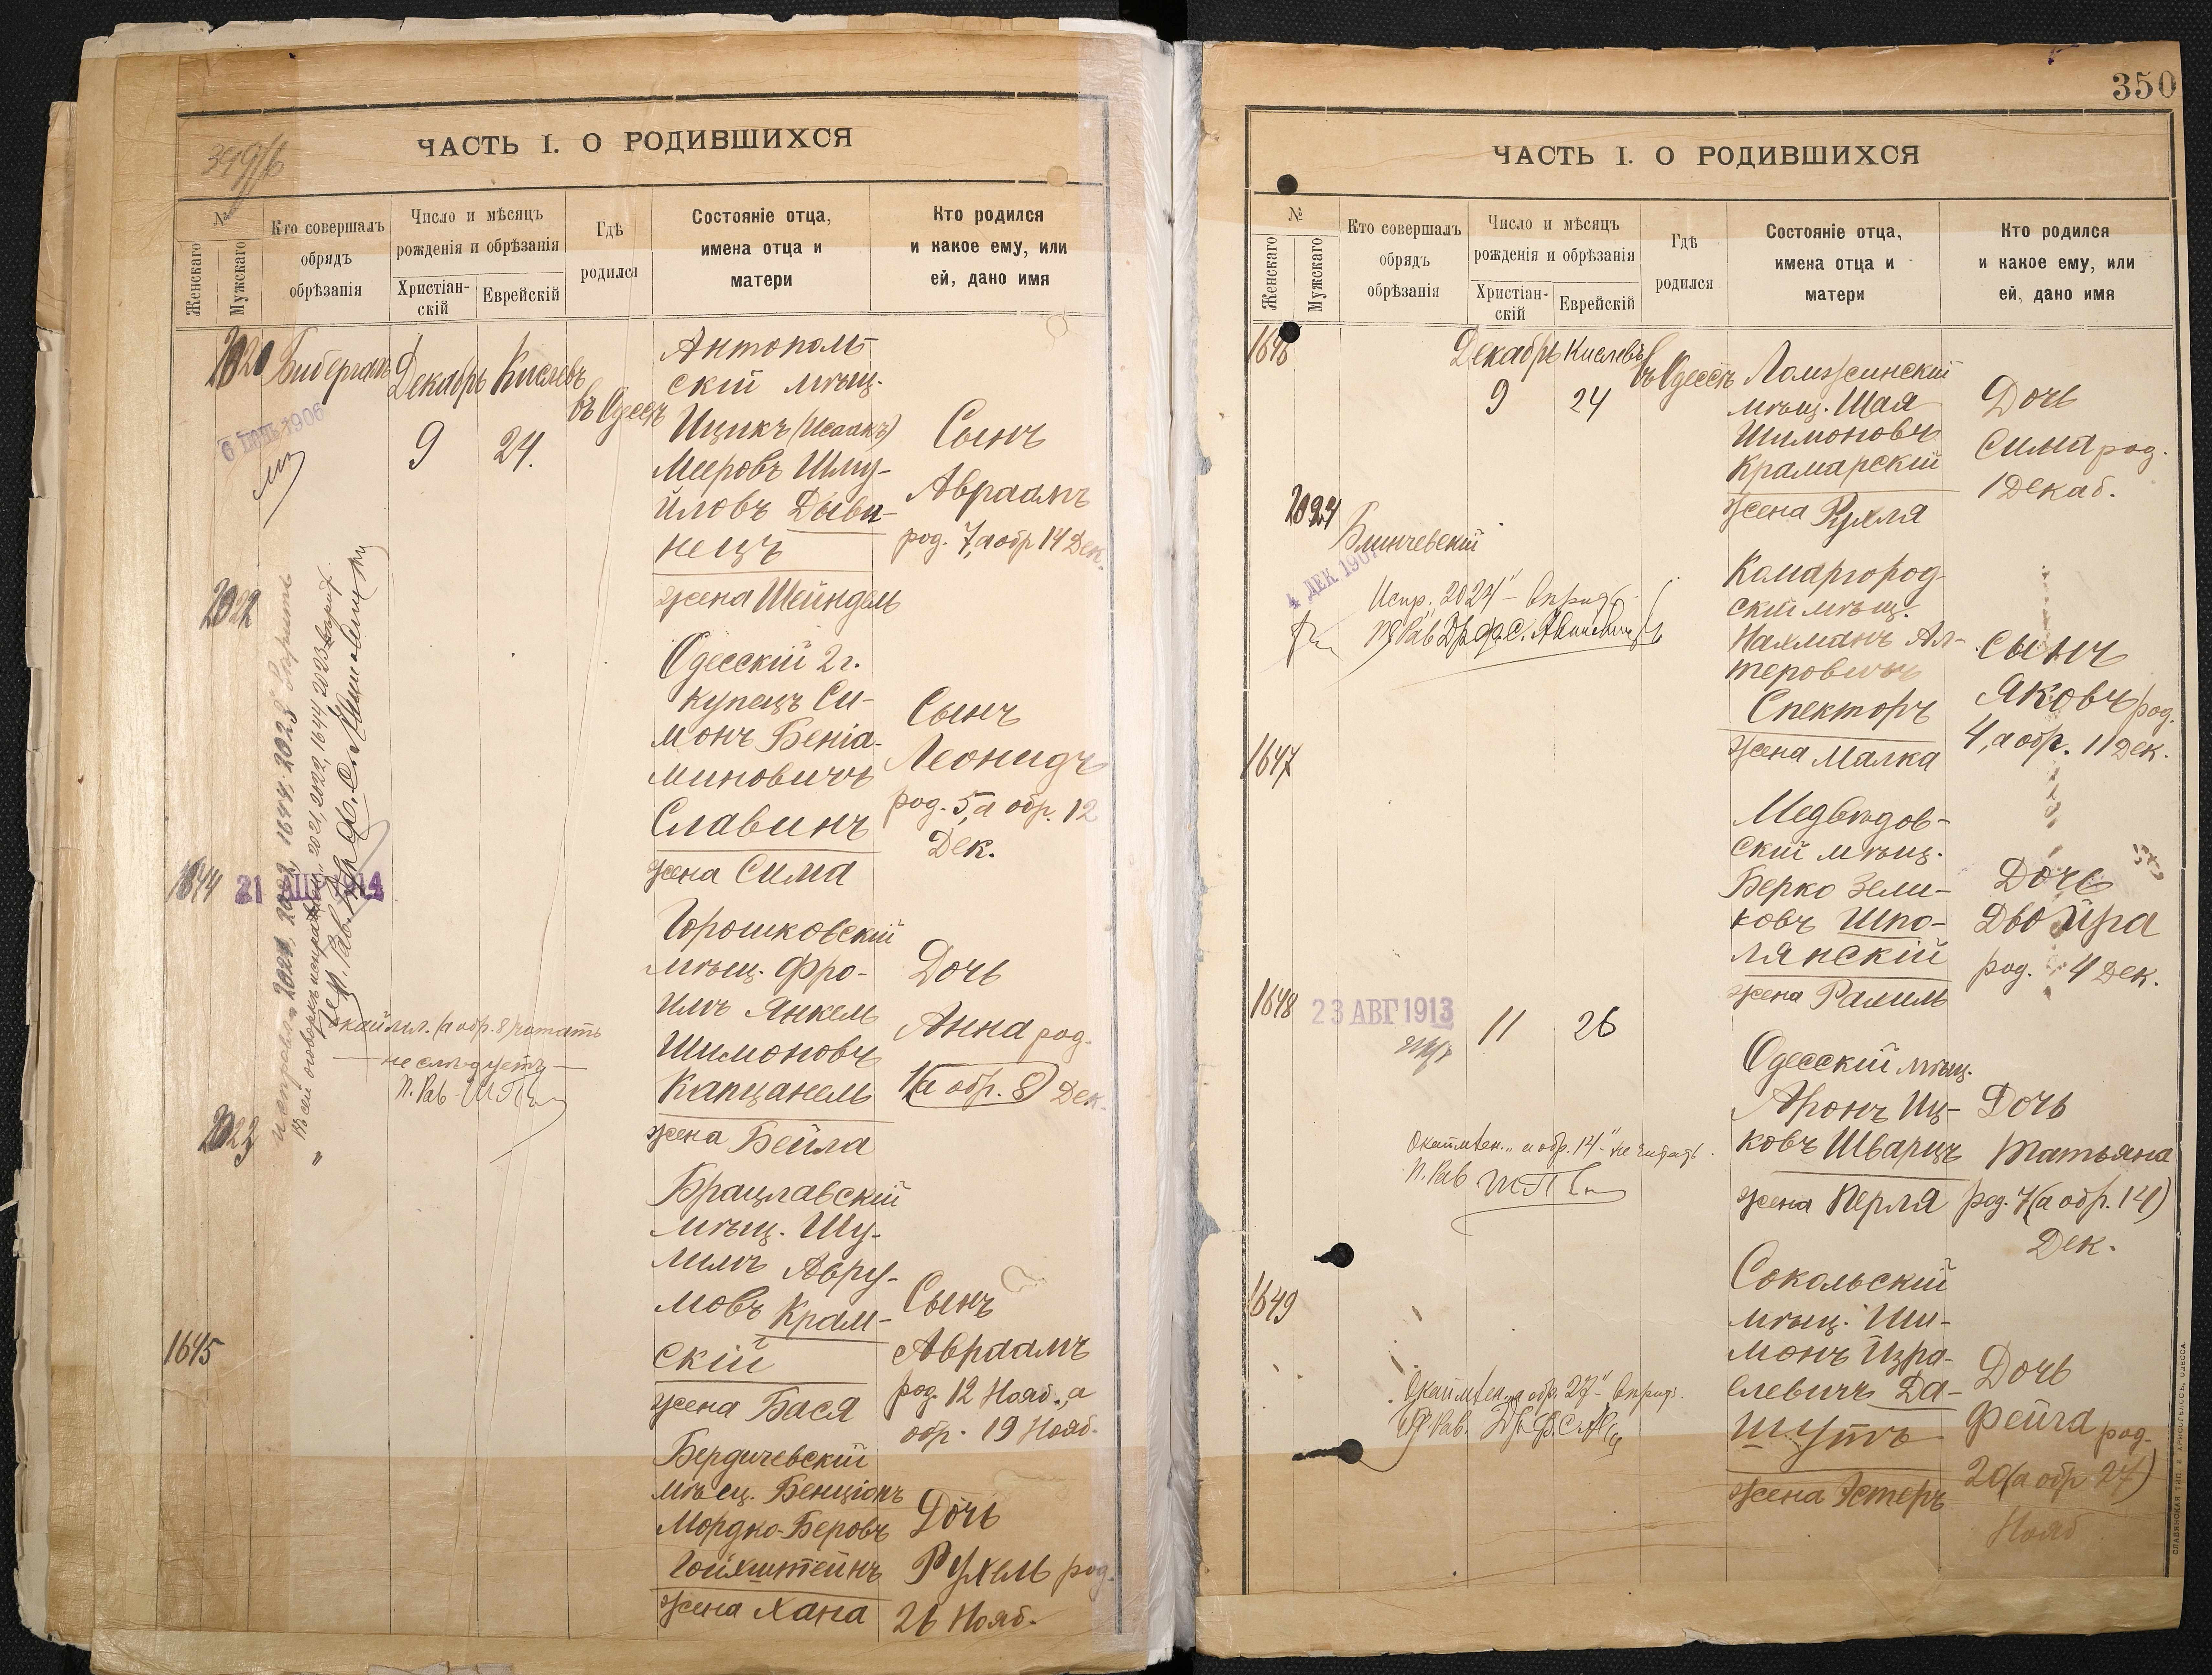 349/б
ЧАСТЬ I. О РОДИВШИХСЯ
№
Женскаго
Мужскаго
Кто совершалъ
обрядъ
обрѣзанія
Число и мѣсяцъ
рожденія и обрѣзанія
Христіан-
скій
Еврейскій
Гдѣ
родился
Состояніе отца,
имена отца и
матери
Кто родился
и какое ему, или
ей, дано имя
Декабрь
Кислевъ
9
24.
въ Одессѣ
Антополь-
скій мѣщ.
Ицикъ (Исаакъ)
Мееровъ Шму-
йловъ Дыви-
нецъ
жена Шейндель
Сынъ
Авраамъ
род. 7, а обр 14 Дек.
2022
Одесскій 2 г.
купецъ Си-
монъ Беніа-
миновичъ
Славинъ
жена Сима
Сынъ
Леонидъ
род. 5, а обр. 12
Дек.
1644
21
Горошковскій
мѣщ. Фро-
имъ Янкель
Шимоновъ
Капцанель
жена Бейла
Дочь
Анна род.
1 (а обр. 8) Дек.
(а обр. 8) читать
не слѣдуетъ
П. Рав
2023
Брацлавскій
мѣщ. Шу-
лимъ Авру-
мовъ Крам-
скій
жена Бася
Сынъ
Авраамъ
род. 12 Нояб., а
обр. 19 Нояб.
1645
Бердичевскій
мѣщ. Бенціонъ
Мордко-Беровъ
Гойхштейнъ
жена Хана
Дочь
Рухель род.
26 Нояб.
350
ЧАСТЬ I. О РОДИВШИХСЯ
№
Женскаго
Мужскаго
Кто совершалъ
обрядъ
обрѣзанія
Число и мѣсяцъ
рожденія и обрѣзанія
Христіан-
скій
Еврейскій
Гдѣ
родился
Состояніе отца,
имена отца и
матери
Кто родился
и какое ему, или
ей, дано имя
1646
Декабрь
Кислевъ
9
24
въ Одессѣ
Ломжинскій
мѣщ. Шая
Шимоновъ
Крамарскій
жена Рухля
Дочь
Сима род.
1 Декаб.
2024
Блинчевскій
4 ДЕК 190
Испр. „2024“
Комаргород-
скій мѣщ.
Нахманъ Ал-
теровичъ
Спекторъ
жена Малка
Сынъ
Яковъ род.
4, а обр. 11 Дек.
1647
Медвѣдов-
скій мѣщ.
Берко Зели-
ковъ Шпо-
лянскій
жена Рахиль
Дочь
Двойра
род. 4 Дек.
1648
23 АВГ 1913
11
26
Одесскій мѣщ.
Аронъ Иц-
ковъ Шварцъ
жена Перля
Дочь
Татьяна
род. 7 (а обр. 14)
Дек.
„а обр. 14“ не читать.
П. Рав
1649
Сокольскій
мѣщ. Ши-
монъ Изра-
елевичъ Да-
шутъ
жена Эстеръ
Дочь
Фейга род.
20 (а обр 27)
Нояб
„а обр. 27“
СЛАВЯНСКАЯ ТИП. Н. ХРИСОГЕЛОСЪ, ОДЕССА